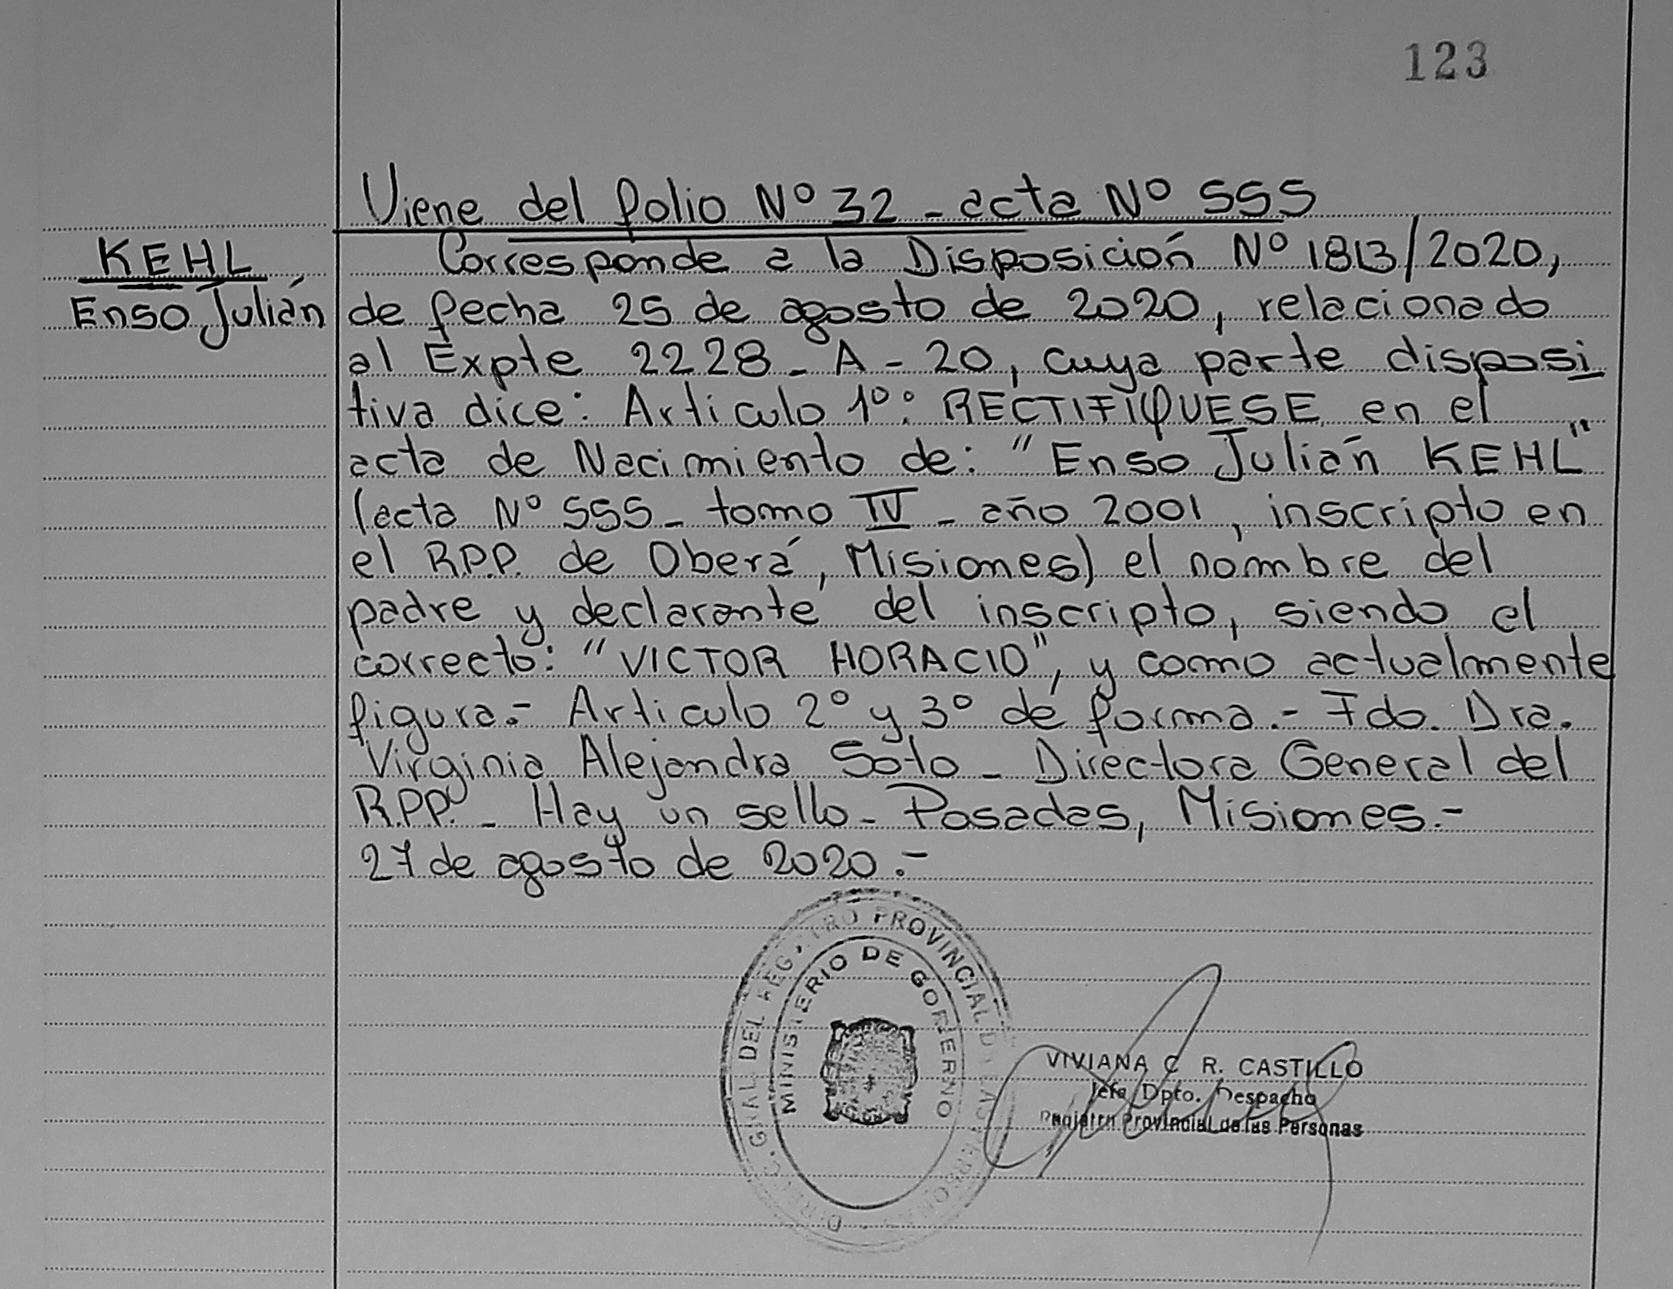 123
Viene del folio Nº 32 - acta Nº 555
KEHL
Enso Julián
Corresponde a la Disposición Nº 1813/2020,
de fecha 25 de agosto de 2020, relacionado
al Expte 2228 - A - 20, cuya parte disposi
tiva dice: Articulo 1º: RECTIFIQUESE en el
acta de Nacimiento de: "Enso Julián KEHL"
(acta Nº 555 - tomo IV - año 2001, inscripto en
el R.P.P. de Oberá, Misiones) el nombre del
padre y declarante del inscripto, siendo el
correcto: "VICTOR HORACIO", y como actualmente
figura.- Articulo 2º y 3º de forma.- Fdo. Dra.
Virginia Alejandra Soto - Directora General del
R.P.P. - Hay un sello - Posadas, Misiones.-
27 de agosto de 2020.-
DIREC. GRAL DEL REGISTRO PROVINCIAL DE LAS PERSONAS
MINISTERIO DE GOBIERNO
VIVIANA C R. CASTILLO
Jefa Dpto. Despacho
Registro Provincial de las Personas